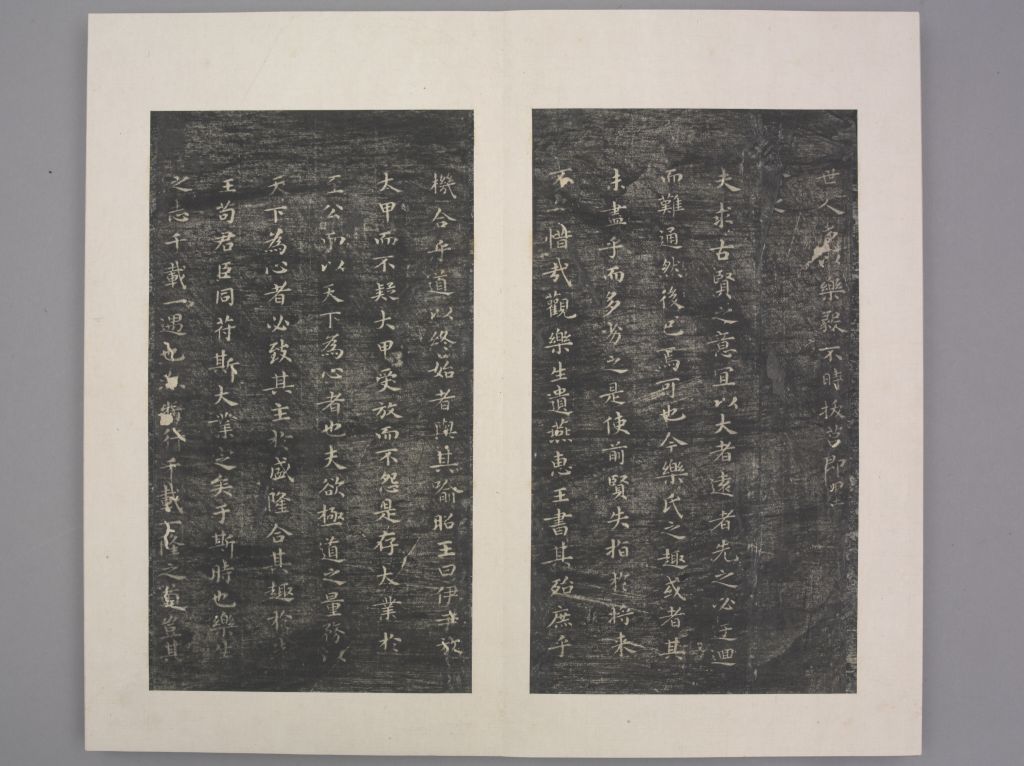 世人樂毅不時拔莒即
夫求古賢之意宜以大者遠者先之必迂迴
而難通然後已焉可也今樂氏之趣或者其
未盡乎而多劣之是使前賢失指於將來
不惜哉觀樂生遺燕惠王書其殆庶乎
機合乎道以終始者與其喻昭王曰伊尹放
大甲而不疑大甲受放而不怨是存大業於
至公而以天下為心者也夫欲極道之量務以
天下為心者必致其主於盛隆合其趣於
王苟君臣同符斯大業之矣于斯時也樂生
之志千載一遇也千載一隆之道豈其